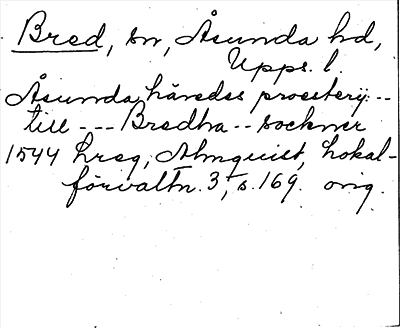 Bred, sn, Åsunda hd,
Upps. l.
Åsunda häredes prosterij ---
till --- Bredha -- sockner
1544 hreg, Almquist, Lokal-
förvaltn. 3, s. 169. orig.